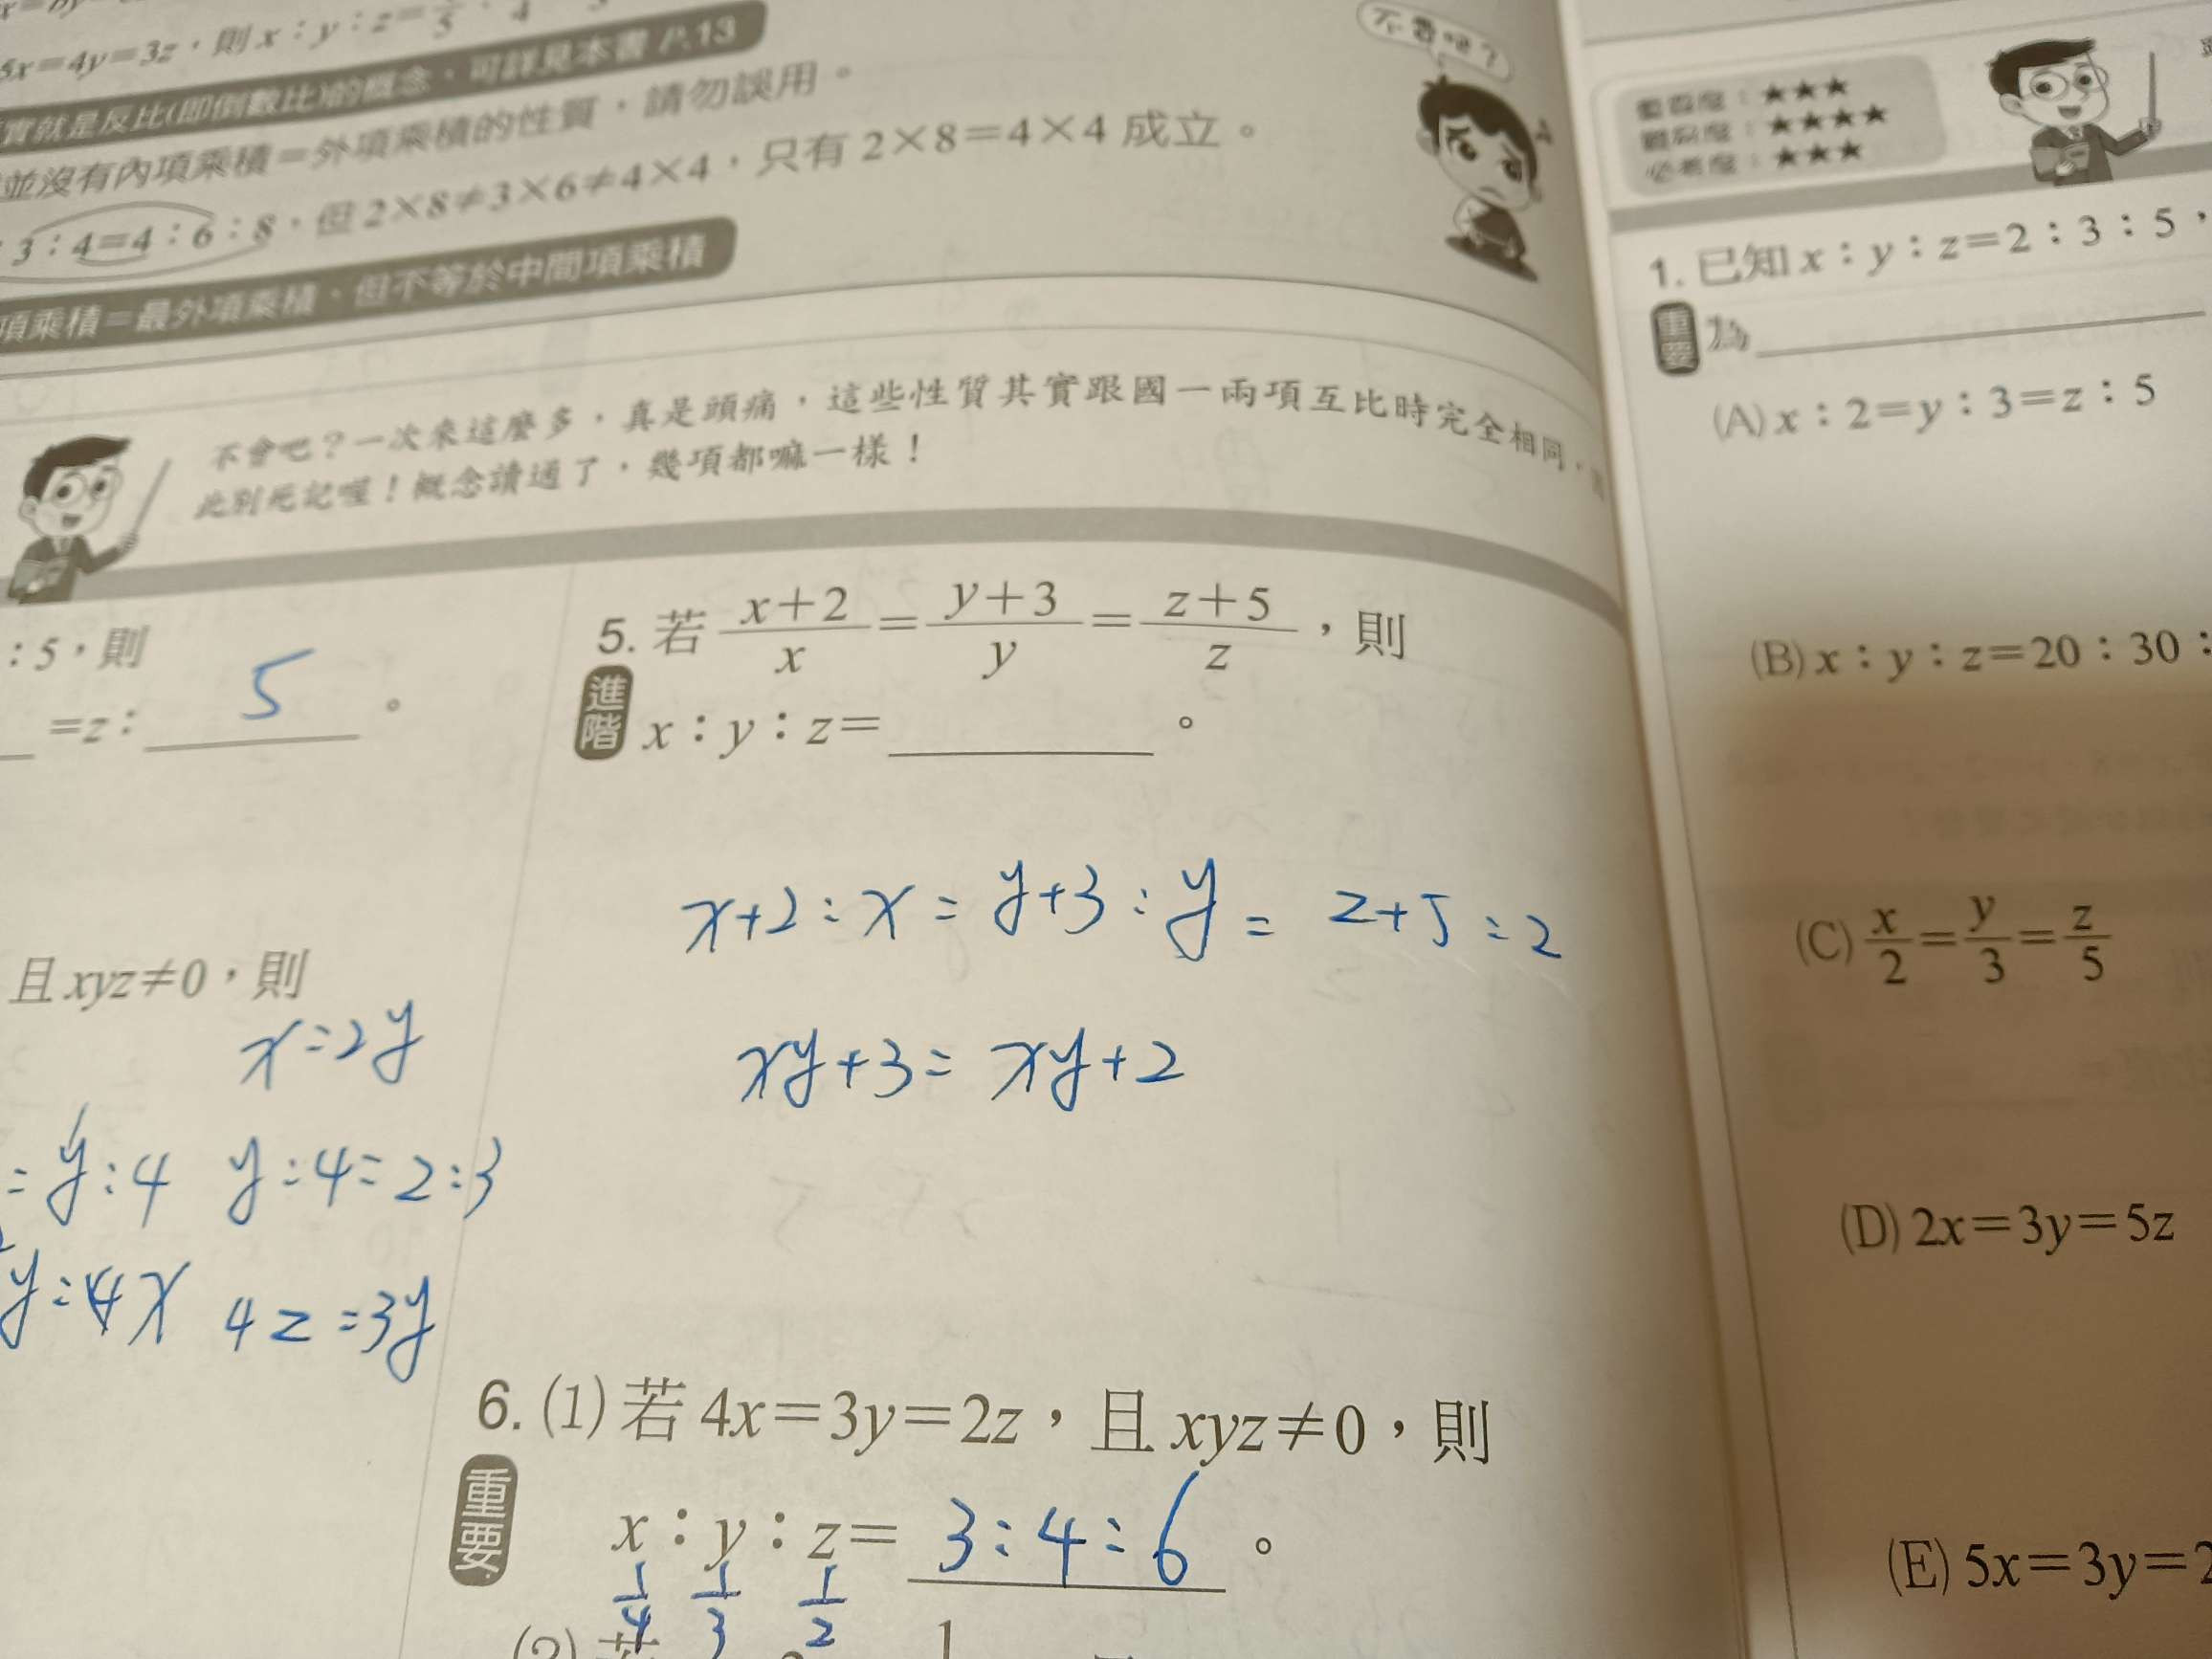 5x=4y=3z，則x：y：z=
實就是反比(即倒數比)的概念，可詳見本書 P.13
並沒有內項乘積=外項乘積的性質，請勿誤用。
3：4=4：6：8，但2×8≠3×6≠4×4，只有2×8=4×4成立。
項乘積=最外項乘積，但不等於中間項乘積
不會吧？
不會吧？一次來這麼多，真是頭痛，這些性質其實跟國一兩項互比時完全相同，
此別死記喔！概念讀通了，幾項都嘛一樣！
：5，則
=z：5。
且xyz≠0，則
x=2y
=y:4 y:4=2:3
y=4x 4z=3y
5. 若 x+2/x = y+3/y = z+5/z，則
進階
x：y：z=______。
x+2:x=y+3:y=z+5:z
xy+3=xy+2
6. (1) 若4x=3y=2z，且xyz≠0，則
重要
x：y：z=3:4:6。
1/4 1/3 1/2
(2) 若
重要度：★★★
難易度：★★★★
必考度：★★★
1. 已知x：y：z=2：3：5，
重要
為______
(A) x：2=y：3=z：5
(B) x：y：z=20：30：
(C) x/2=y/3=z/5
(D) 2x=3y=5z
(E) 5x=3y=2